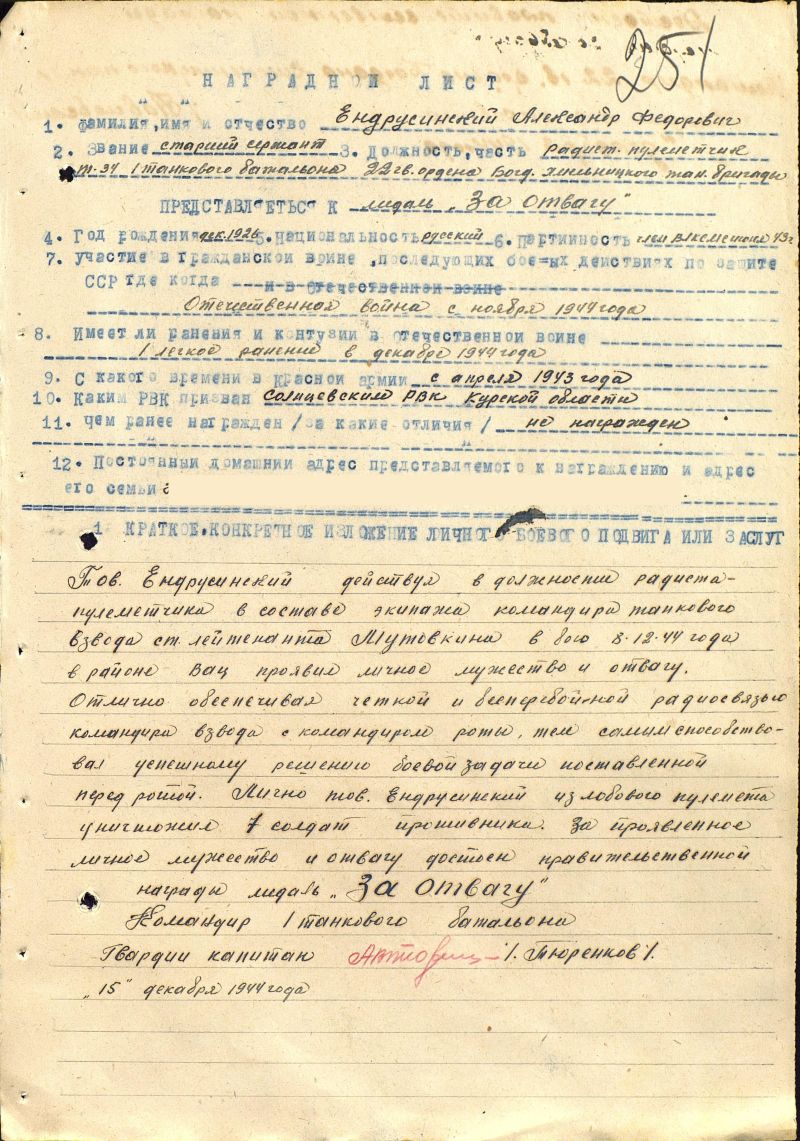 251
НАГРАДНОЙ ЛИСТ
1. Фамилия, имя и отчество Ендрусинский Александр Федорович
2. Звание старший сержант 3. Должность, часть радист. пулеметчик
т-34 1 танкового батальона 22 гв. ордена Богд. Хмельницкого тан. бригады
ПРЕДСТАВЛЯЕТЬСЯ К медаль „За отвагу"
4. Год рождения дек. 1926 5. Национальность русский 6. Партийность член ВЛКСМ с 43 г
7. Участие в гражданской воине, последующих боевых действиях по защите
ССР где когда и в отечественной воине
Отечественная война с ноября 1944 года
8. Имеет ли ранения и контузии в отечественной воине
1 легкое ранение в декабре 1944 года
9. С какого времени в Красной армии с апреля 1943 года
10. Каким РВК призван Солнцевским РВК Курской области
11. чем ранее награжден /за какие отличия/ не награжден
12. Постоянный домашнии адрес представляемого к награждению и адрес
его семьи
1 КРАТКОЕ, КОНКРЕТНОЕ ИЗЛОЖЕНИЕ ЛИЧНОГО БОЕВОГО ПОДВИГА ИЛИ ЗАСЛУГ
Тов. Ендрусинский действуя в должности радиста-
пулеметчика в составе экипажа командира танкового
взвода ст. лейтенанта Мутовкина в бою 8.12.44 года
в районе Вац проявил личное мужество и отвагу.
Отлично обеспечивая четкой и бесперебойной радиосвязью
командира взвода с командиром роты, тем самим способство-
вал успешному решению боевой задачи поставленной
перед ротой. Лично тов. Ендрусинский из лобового пулемета
уничтожил 7 солдат противника. За проявленное
личное мужество и отвагу достоен правительственной
награды медаль „За отвагу"
Командир 1 танкового батальона
Гвардии капитан /. Тюренков /.
„15" декабря 1944 года